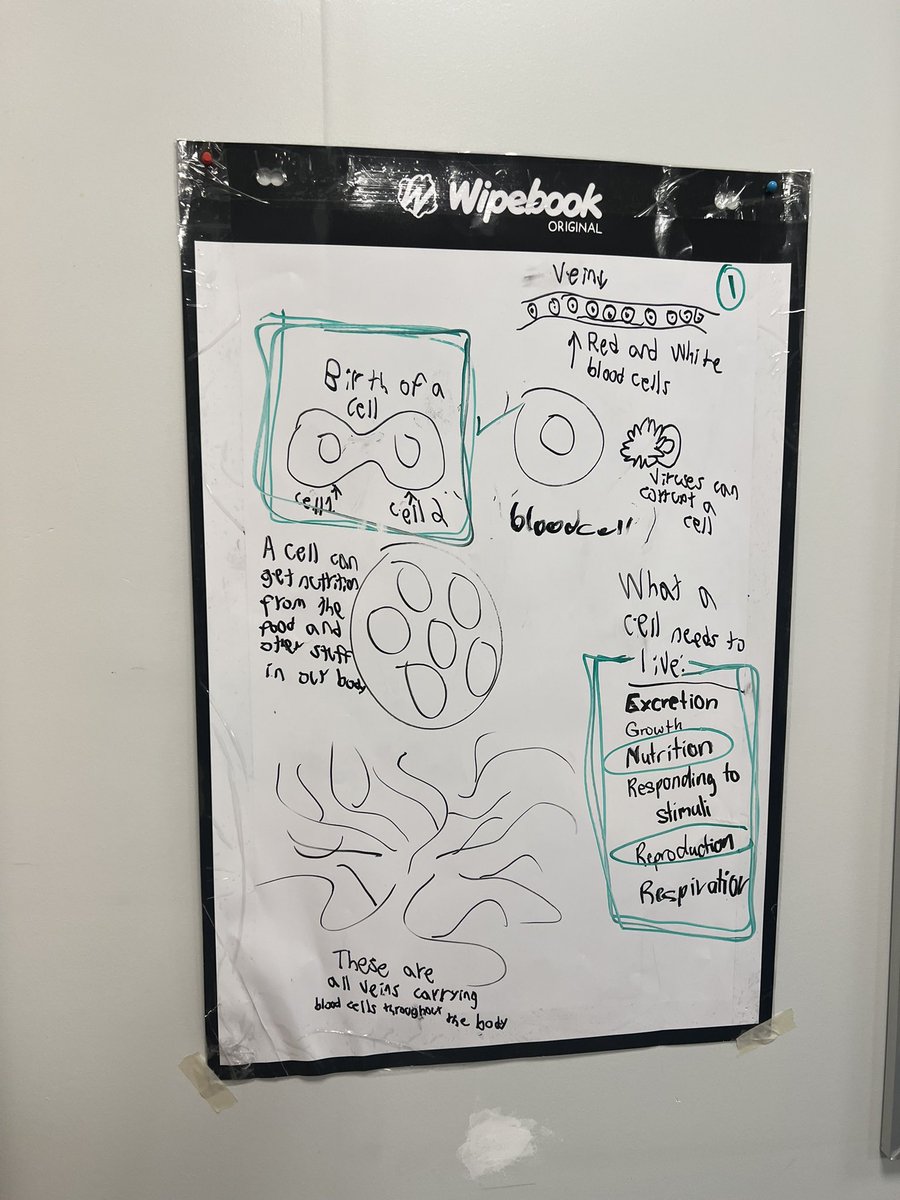 Wipebook
ORIGINAL
1
Vein
Red and White
blood cells
Birth of a
cell
cell 1
cell 2
blood cell
Viruses can
corrupt a
cell
A cell can
get nutrition
from the
food and
other stuff
in our body
What a
cell needs to
live:
Excretion
Growth
Nutrition
Responding to
stimuli
Reproduction
Respiration
These are
all veins carrying
blood cells throughout the body